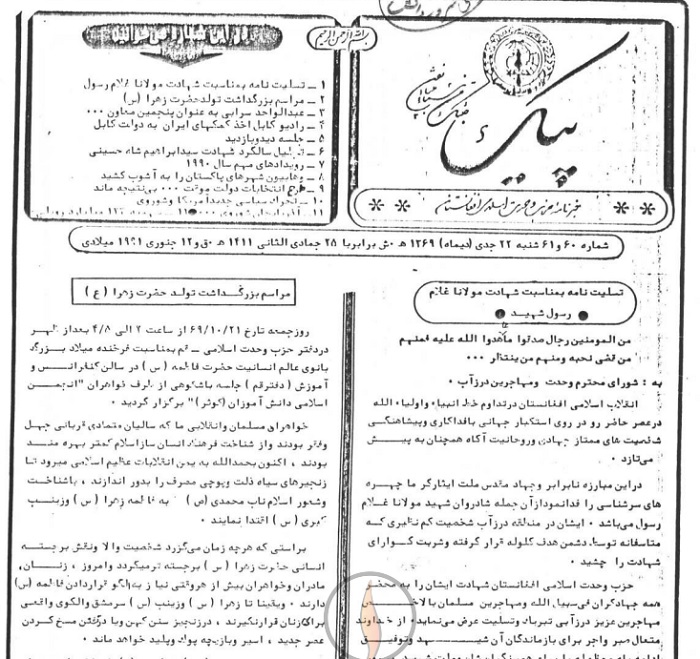 بسم الله الرحمن الرحیم
پیک
خبرنامه حزب وحدت اسلامی افغانستان
۱ ـ تسلیت نامه بمناسبت شهادت مولانا غلام رسول
۲ ـ مراسم بزرگداشت تولدحضرت زهرا (س)
۳ ـ عبدالواحد سرابی به عنوان پنجمین معاون ۰۰۰
۴ ـ رادیو کابل اخذ کمکهای ایران به دولت کابل
۵ ـ جلسه دیدوبازدید
۶ ـ تجلیل سالگرد شهادت سیدابراهیم شاه حسینی
۷ ـ رویدادهای مهم سال ۱۹۹۰
۸ ـ وهابیون شهرهای پاکستان را به آشوب کشید
۹ ـ انتخابات دولت موقت ۰۰۰ بی‌نتیجه ماند
۱۰ ـ تحرک سیاسی جدید آمریکا وشوروی
شماره ۶۰ و۶۱ شنبه ۲۲ جدی (دیماه) ۱۳۶۹ ه ش برابربا ۲۵ جمادی الثانی ۱۴۱۱ ه ق و۱۲ جنوری ۱۹۹۱ میلادی
تسلیت نامه بمناسبت شهادت مولانا غلام
رسول شهید
من المومنین رجال صدقوا ماعاهدوا الله علیه فمنهم
من قضی نحبه ومنهم من ینتظر ۰۰۰
به : شورای محترم وحدت ومهاجرین درزآب ۰
انقلاب اسلامی افغانستان درتداوم خط انبیاء واولیاء الله
درعصر حاضر رو در روی استکبار جهانی بافداکاری وپیشاهنگی
شخصیت های ممتاز جهادی وروحانیت آگاه همچنان به پیش
می‌تازد ۰
دراین مبارزه نابرابر وجهاد مقدس ملت ایثارگر ما چهره
های سرشناسی را فدانمودازآن جمله شادروان شهید مولانا غلام
رسول می‌باشد ۰ ایشان در منطقه درزآب شخصیت کم نظیری که
متاسفانه توسط دشمن هدف گلوله قرار گرفته وشربت گوارای
شهادت را چشید ۰
حزب وحدت اسلامی افغانستان شهادت ایشان را به محضر
همه جهادگران فی‌سبیل الله ومهاجرین مسلمان بالاخص
مهاجرین عزیز درزآبی تبریک وتسلیت عرض می‌نماید، از خداوند
متعال صبر واجر برای بازماندگان آن شهید وتوفیق
مراسم بزرگداشت تولد حضرت زهرا (ع)
روزجمعه تارخ ۶۹/۱۰/۲۱ از ساعت ۲ الی ۴/۵ بعداز ظهر
دردفتر حزب وحدت اسلامی ـ قم بمناسبت فرخنده میلاد بزرگ
بانوی عالم انسانیت حضرت فاطمه (س) در سالن کنفرانس و
آموزش (دفترقم) جلسه باشکوهی از طرف خواهران "انجمن
اسلامی دانش آموزان (کوثر)" برگزار گردید ۰
خواهرای مسلمان وانقلابی ما که سالیان متمادی قربانی جهل
وفقر بودند واز شناخت فرهنگ انسان سازاسلام کمتر بهره مند
بودند ، اکنون بحمدالله به یمن انقلابات عظیم اسلامی میرود تا
زنجیرهای سیاه ذلت وپوچی مصرف را بدور اندازند ، باشناخت
وشعور اسلام ناب محمدی (ص) به فاطمه زهرا (س) وزینب
کبری (س) اقتدا نمایند ۰
براستی که هرچه زمان می‌گزرد شخصیت والا ونقش برجسته
انسانی حضرت زهرا (س) برجسته ترمیگردد وامروز ، زنان،
مادران وخواهران بیش از هروقتی نیاز به‌الگو قراردادن فاطمه (س)
دارند ۰ ویقینا تا زهرا (س) وزینب (س) سرمشق والگوی واقعی
برای‌زنان قرارنگیرند ، درزنجیر سنن کهن وبا درگفتن مسخ کردن
عصر جدید ، اسیر وبازیچه پوک وپلید خواهد ماند ۰